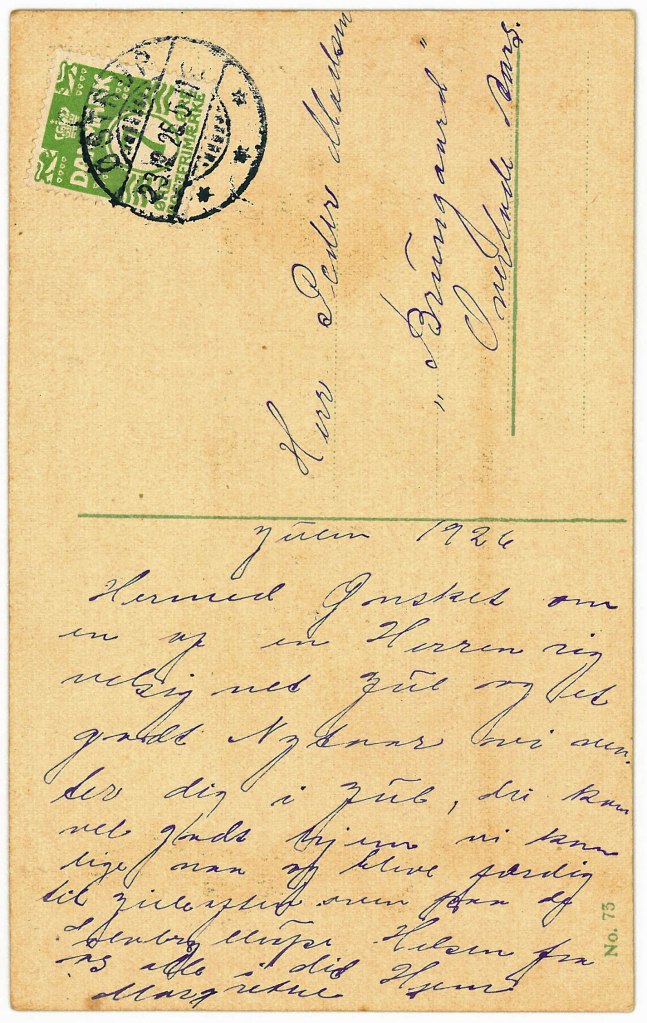 DANMARK
7
BREVFRIMÆRKE
23.12.26
Herr Peder Madsen
"Brūngaard"
Snerlode
Julen 1926
Hermed Ønsket om
en af en Herren rig
velsignet Jūl og et
godt Nytaar vi ven-
ter dig i Jūl, du kan
vel godt hjem vi kan
lige naa og blive færdig
til Juleaften oven paa de
Hilsen fra
os alle i dit Hjem
Margrethe
No. 73